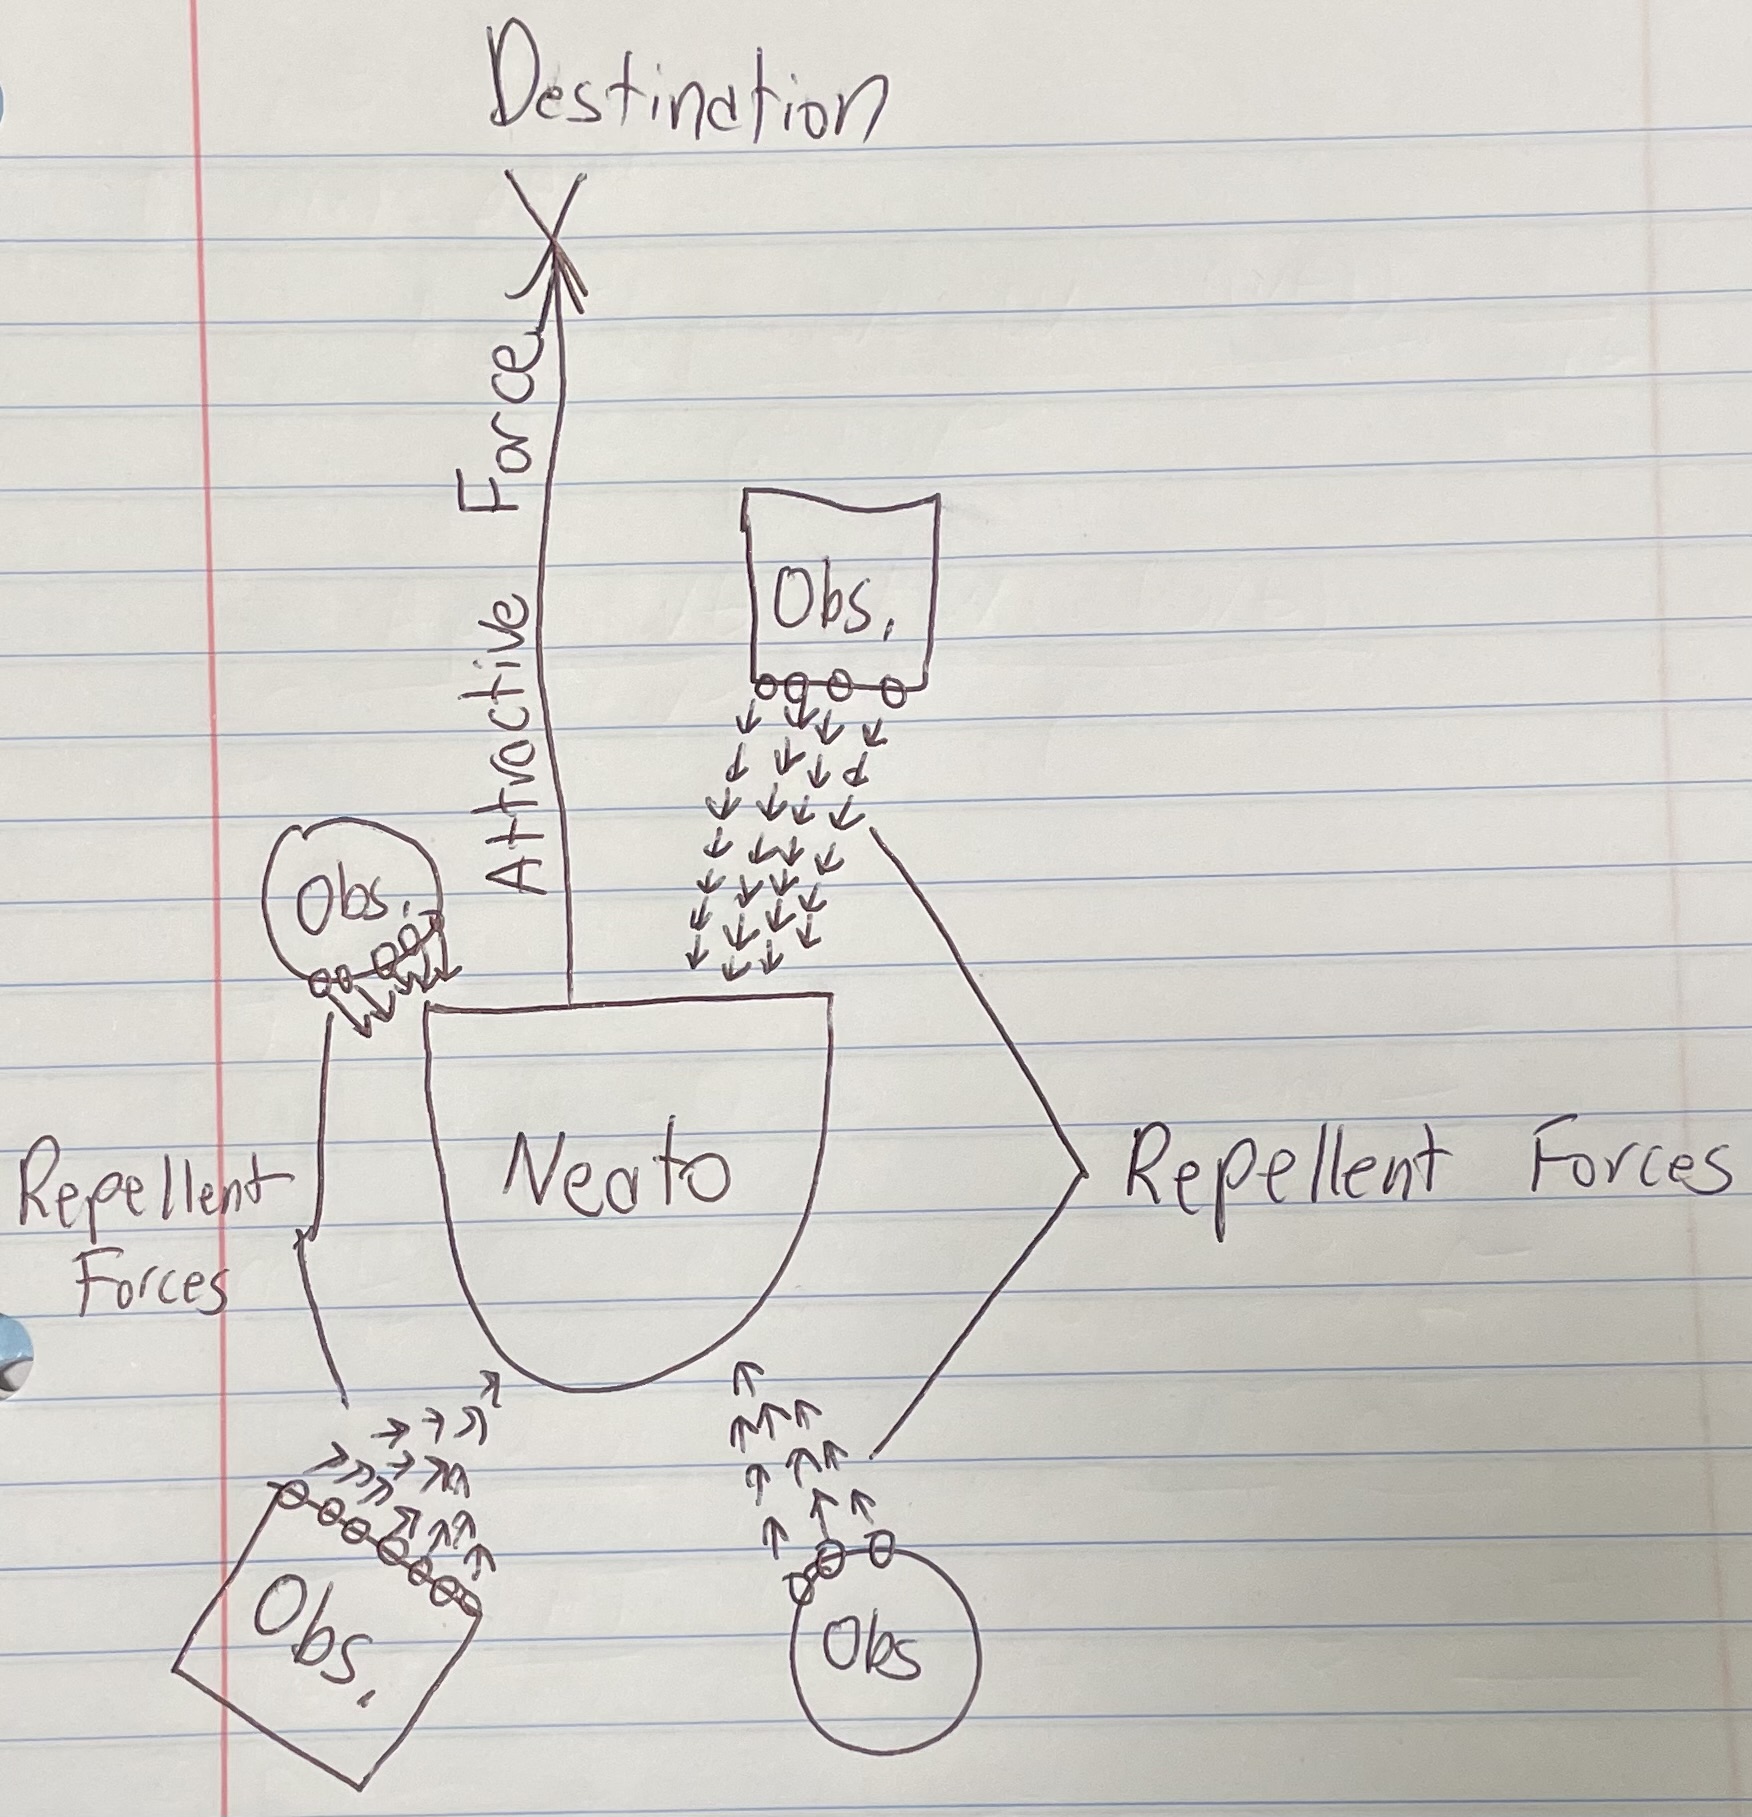 Destination
Attractive Force
Obs.
Obs.
Neato
Repellent
Forces
Repellent Forces
Obs.
Obs